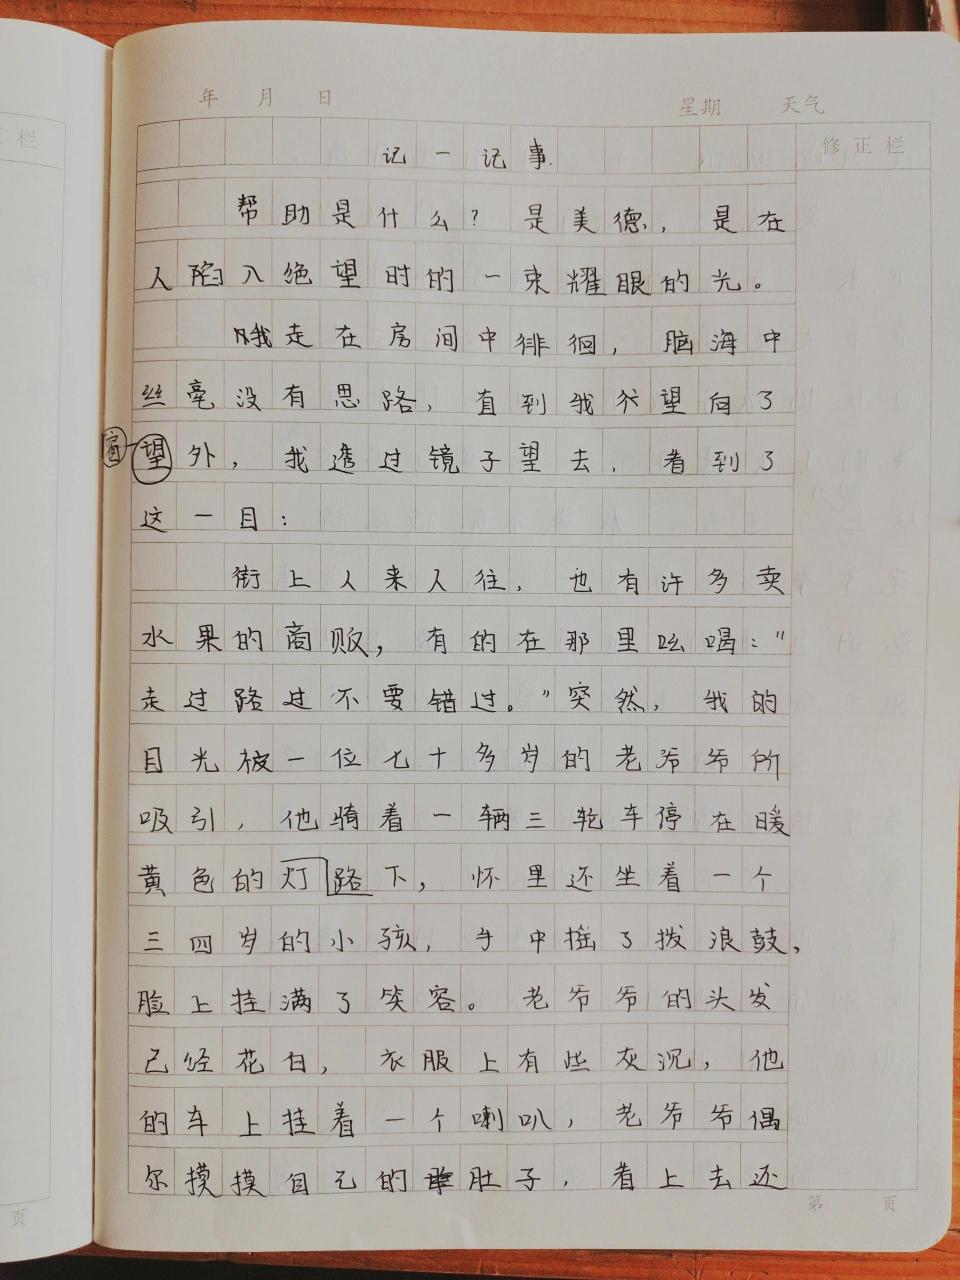 年 月 日 星期 天气
正栏
修正栏
记一记事.
帮助是什么？是美德，是在
人陷入绝望时的一束耀眼的光。
我走在房间中徘徊，脑海中
丝毫没有思路，直到我望向了
窗
望外，我透过镜子望去，看到了
这一目：
街上人来人往，也有许多卖
水果的商贩，有的在那里吆喝："
走过路过不要错过。"突然，我的
目光被一位七十多岁的老爷爷所
吸引，他骑着一辆三轮车停在暖
黄色的灯路下，怀里还坐着一个
三四岁的小孩，手中摇了拨浪鼓，
脸上挂满了笑容。老爷爷的头发
己经花白，衣服上有些灰沉，他
的车上挂着一个喇叭，老爷爷偶
尔摸摸自己的肚子，看上去还
页
第 页